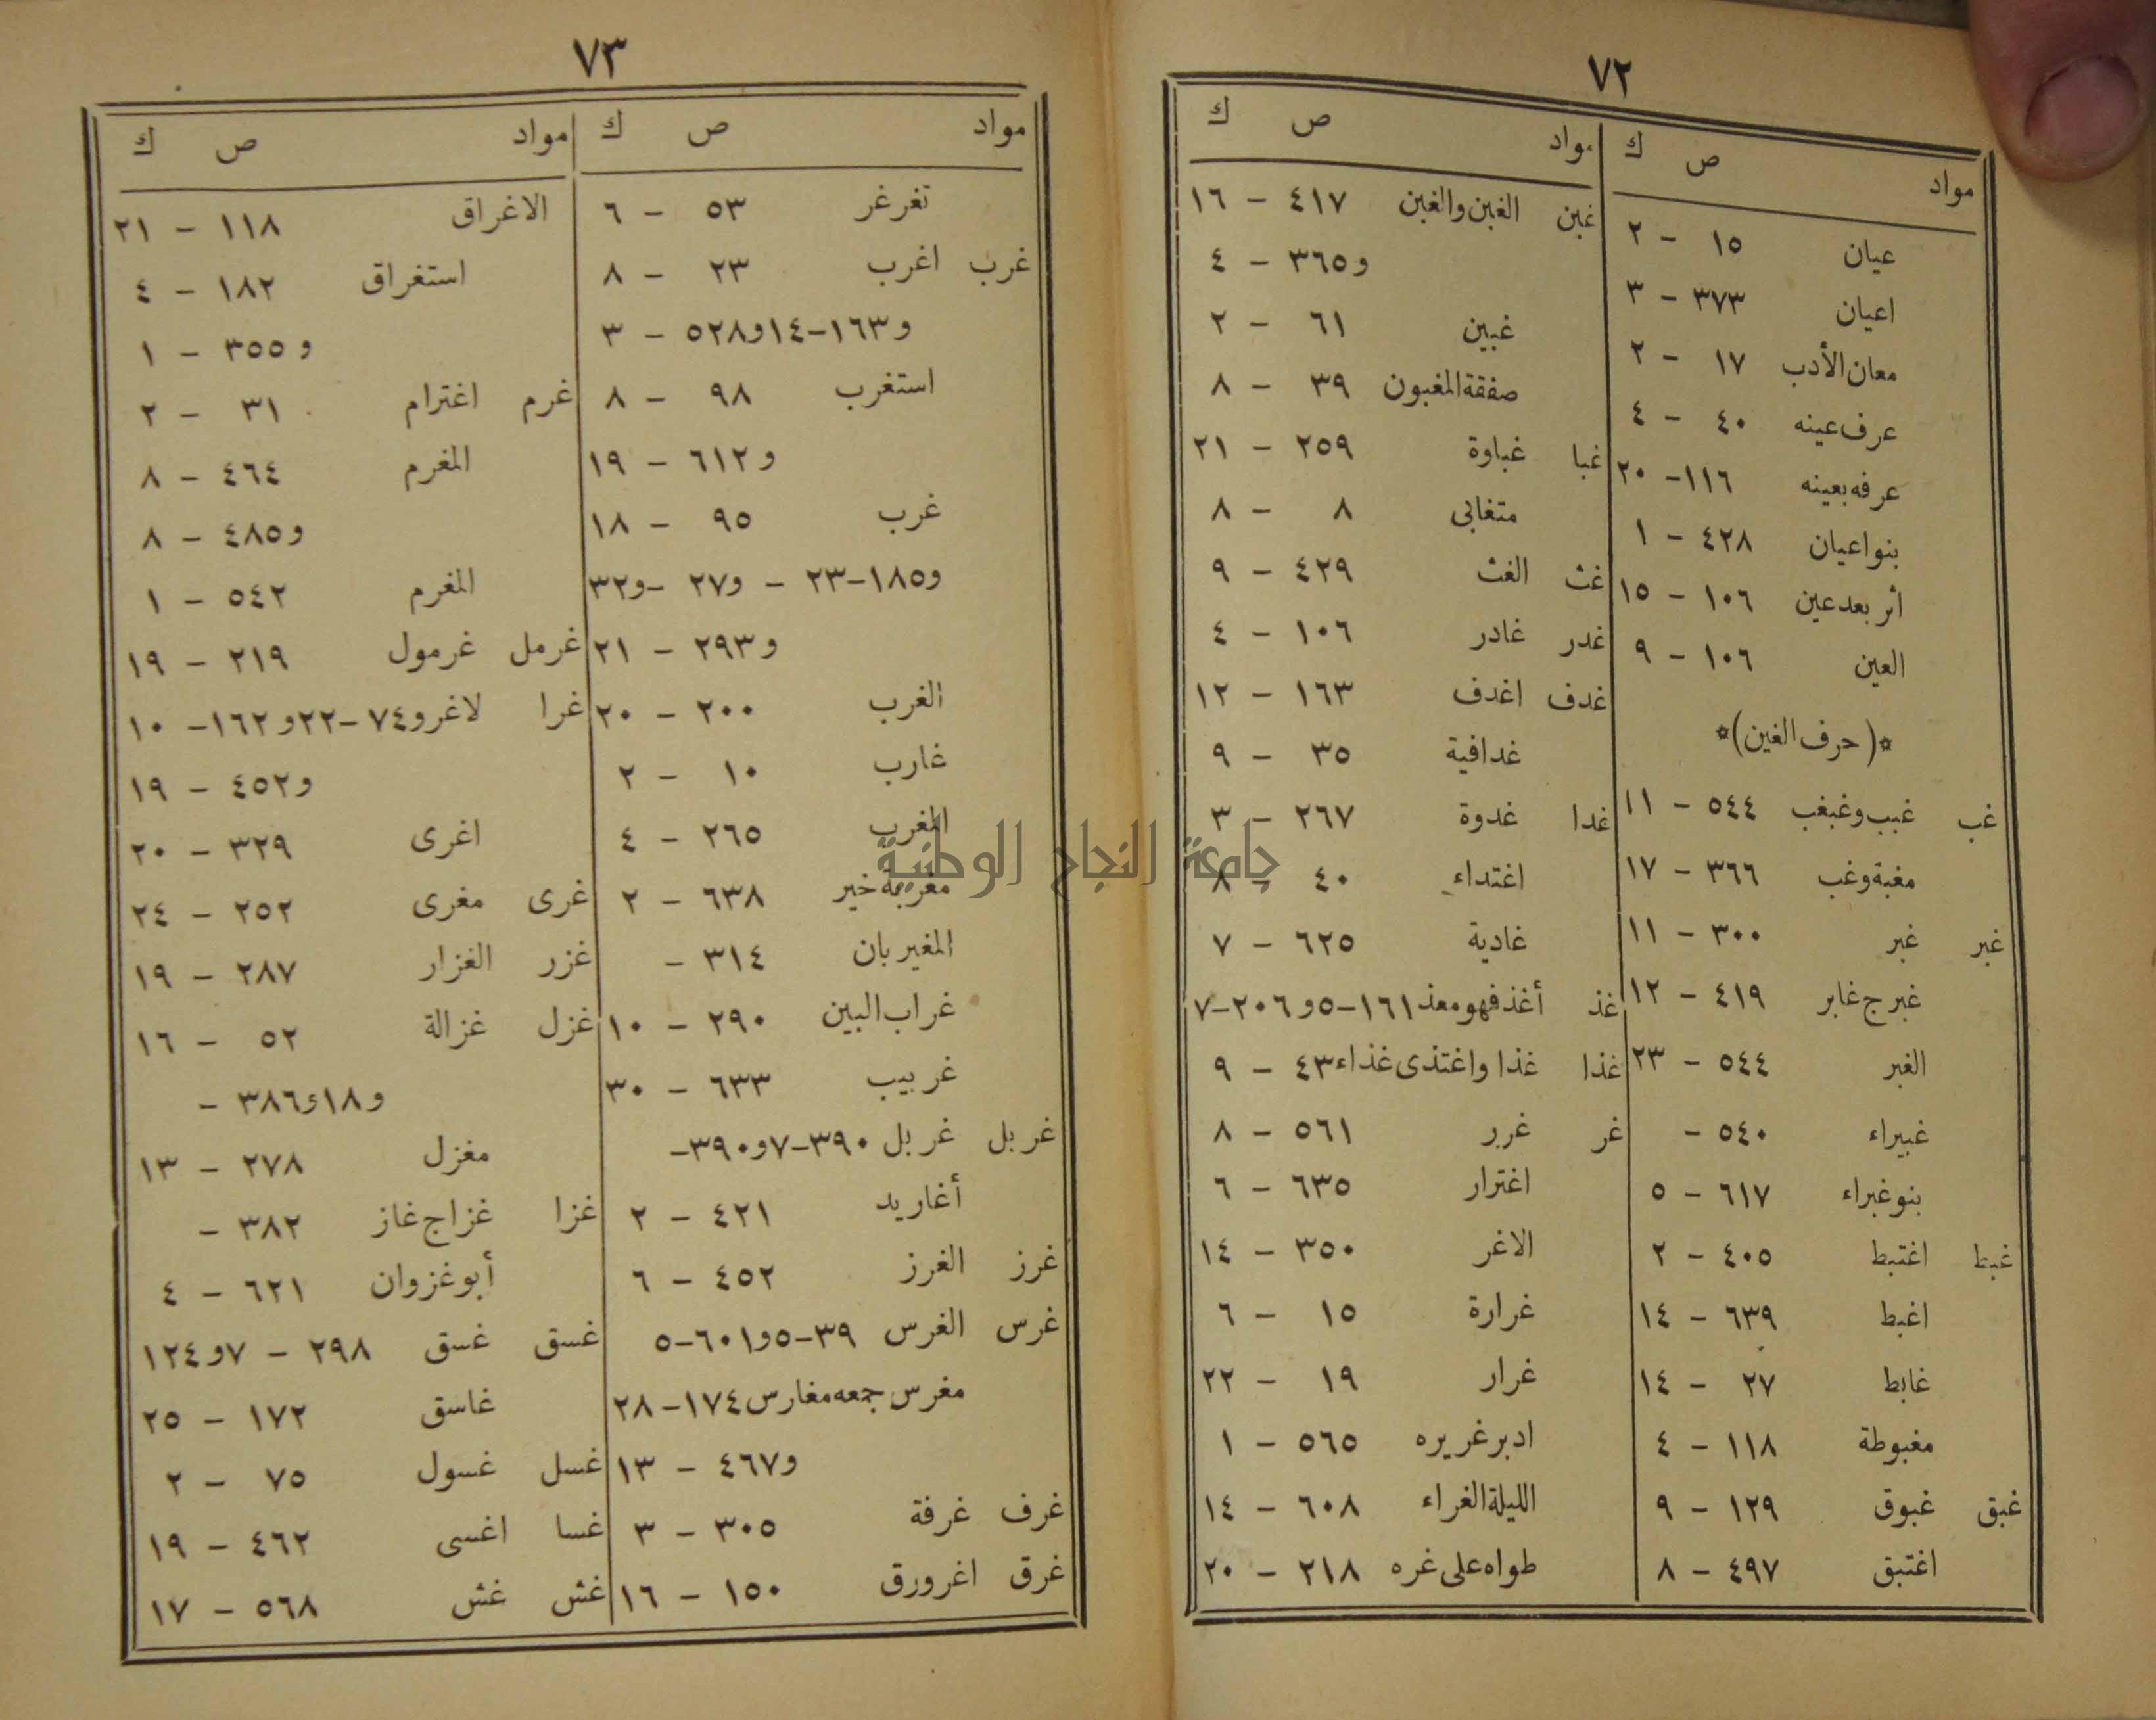 ٧٢
مواد ص ك
عيان ١٥ - ٢
اعيان ٣٧٣ - ٣
معان الأدب ١٧ - ٢
عرف عينه ٤٠ - ٤
عرفه بعينه ١١٦ - ٢٠
بنو اعيان ٤٢٨ - ١
أثر بعد عين ١٠٦ - ١٥
العين ١٠٦ - ٩
*(حرف الغين)*
غب غبب وغبغب ٥٤٤ - ١١
مغبة وغب ٣٦٦ - ١٧
غبر غبر ٣٠٠ - ١١
غبر ج غابر ٤١٩ - ١٢
الغبر ٥٤٤ - ٢٣
غبيراء ٥٤٠ -
بنو غبراء ٦١٧ - ٥
غبط اغتبط ٤٠٥ - ٢
اغبط ٦٣٩ - ١٤
غابط ٢٧ - ١٤
مغبوطة ١١٨ - ٤
غبق غبوق ١٢٩ - ٩
اغتبق ٤٩٧ - ٨
مواد ص ك
غبن الغبن والغبن ٤١٧ - ١٦
و٣٦٥ - ٤
غبين ٦١ - ٢
صفقة المغبون ٣٩ - ٨
غبا غباوة ٢٥٩ - ٢١
متغابى ٨ - ٨
غث الغث ٤٢٩ - ٩
غدر غادر ١٠٦ - ٤
غدف اغدف ١٦٣ - ١٢
غدافية ٣٥ - ٩
غدا غدوة ٢٦٧ - ٣
اغتداء ٤٠ - ٨
غادية ٦٢٥ - ٧
غذ أغذ فهو معذ ١٦١-٥ و٢٠٦-٧
غذا غذا واغتذى غذاء ٤٣ - ٩
غر غرر ٥٦١ - ٨
اغترار ٦٣٥ - ٦
الاغر ٣٥٠ - ١٤
غرارة ١٥ - ٦
غرار ١٩ - ٢٢
ادبر غريره ٥٦٥ - ١
الليلة الغراء ٦٠٨ - ١٤
طواه على غره ٢١٨ - ٢٠
٧٣
مواد ص ك
تغرغر ٥٣ - ٦
غرب اغرب ٢٣ - ٨
و١٦٣-١٤ و٥٢٨ - ٣
استغرب ٩٨ - ٨
و٦١٢ - ١٩
غرب ٩٥ - ١٨
و١٨٥-٢٣ - و٢٧ - و٣٢
و٢٩٣ - ٢١
الغرب ٢٠٠ - ٢٠
غارب ١٠ - ٢
المغرب ٢٦٥ - ٤
مغربة خير ٦٣٨ - ٢
المغيربان ٣١٤ -
غراب البين ٢٩٠ - ١٠
غربيب ٦٣٣ - ٣٠
غربل غربل ٣٩٠-٧ و٣٩٠-
أغاريد ٤٢١ - ٢
غرز الغرز ٤٥٢ - ٦
غرس الغرس ٣٩-٥ و٦٠١-٥
مغرس جمعه مغارس ١٧٤-٢٨
و٤٦٧ - ١٣
غرف غرفة ٣٠٥ - ٣
غرق اغرورق ١٥٠ - ١٦
مواد ص ك
الاغراق ١١٨ - ٢١
استغراق ١٨٢ - ٤
و٣٥٥ - ١
غرم اغترام ٣١ - ٢
المغرم ٤٦٤ - ٨
و٤٨٥ - ٨
المغرم ٥٤٢ - ١
غرمل غرمول ٢١٩ - ١٩
غرا لاغرو ٧٤-٢٢ و١٦٢-١٠
و٤٥٢ - ١٩
اغرى ٣٢٩ - ٢٠
غرى مغرى ٢٥٢ - ٢٤
غزر الغزار ٢٨٧ - ١٩
غزل غزالة ٥٢ - ١٦
و١٨ و٣٨٦ -
مغزل ٢٧٨ - ١٣
غزا غزاج غاز ٣٨٢ -
أبو غزوان ٦٢١ - ٤
غسق غسق ٢٩٨ - ٧ و١٢٤
غاسق ١٧٢ - ٢٥
غسل غسول ٧٥ - ٢
غسا اغسى ٤٦٢ - ١٩
غش غش ٥٦٨ - ١٧
جامعة النجاح الوطنية